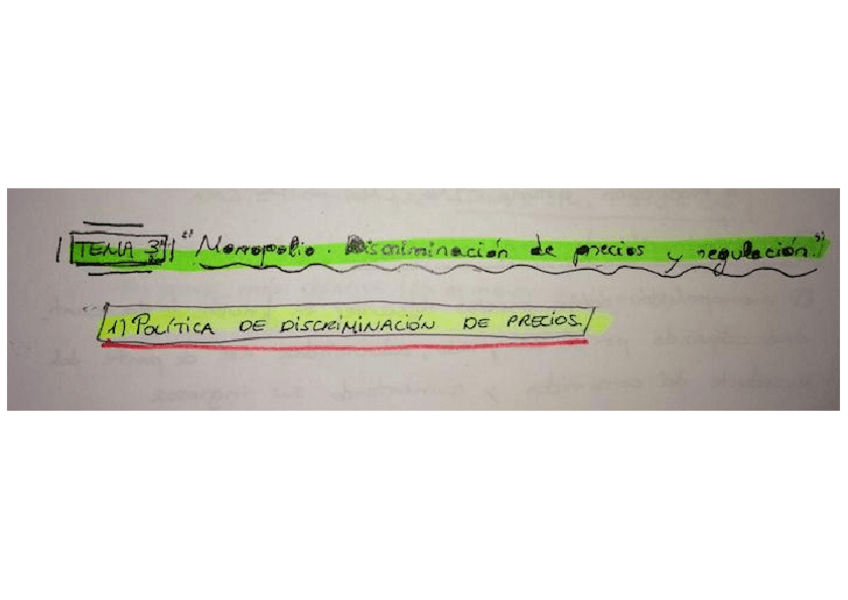 TEMA 3 "Monopolio. Discriminación de precios y regulación."
1) POLÍTICA DE DISCRIMINACIÓN DE PRECIOS.